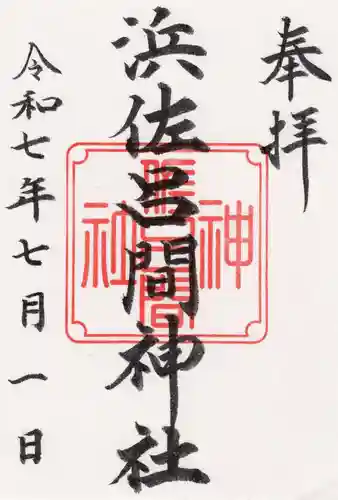 奉拝
浜佐呂間神社
令和七年七月一日
神
社